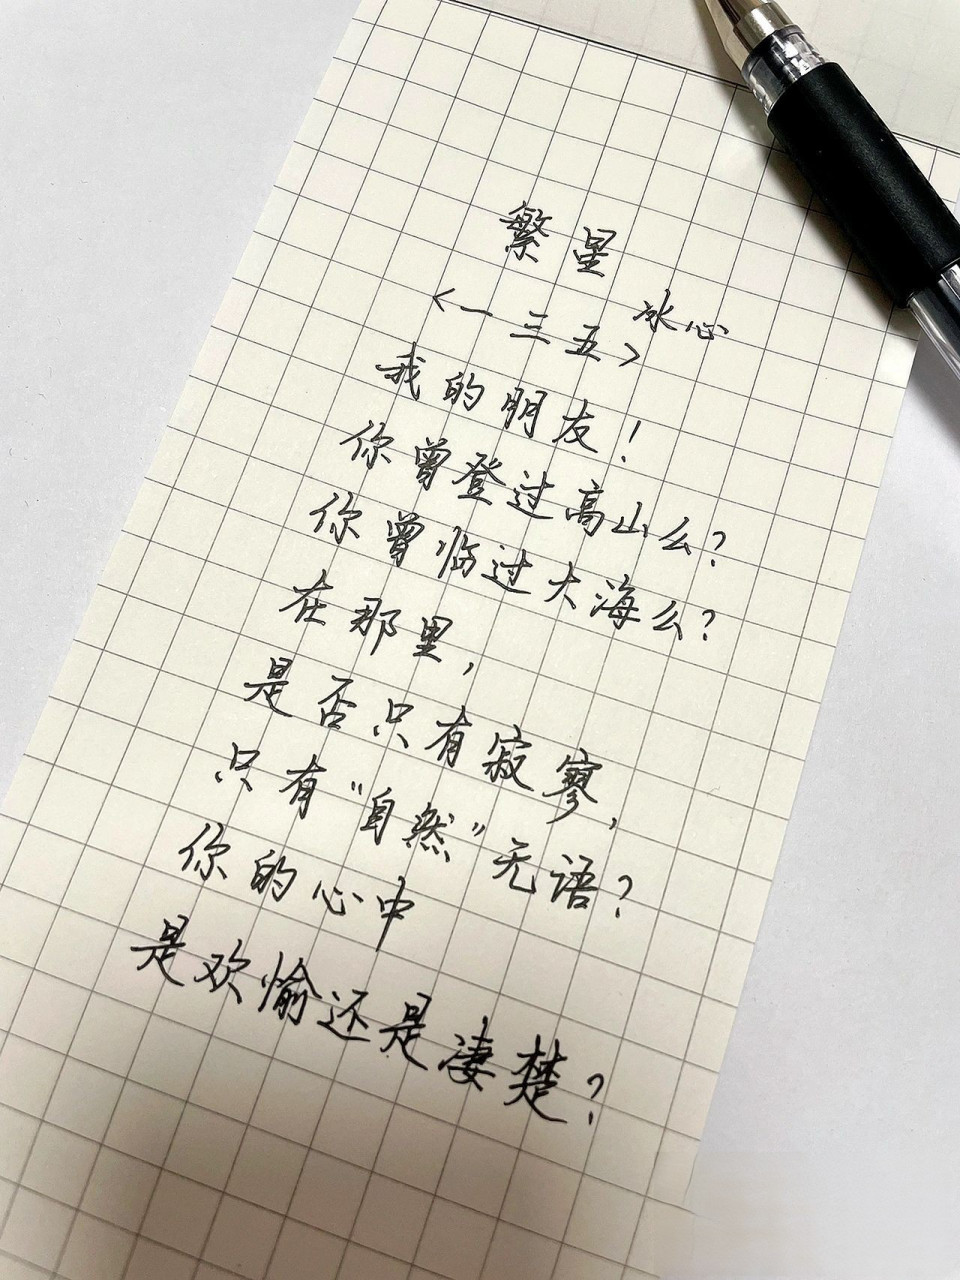 繁星
冰心
<一三五>
我的朋友！
你曾登过高山么？
你曾临过大海么？
在那里，
是否只有寂寥，
只有“自然”无语？
你的心中
是欢愉还是凄楚？